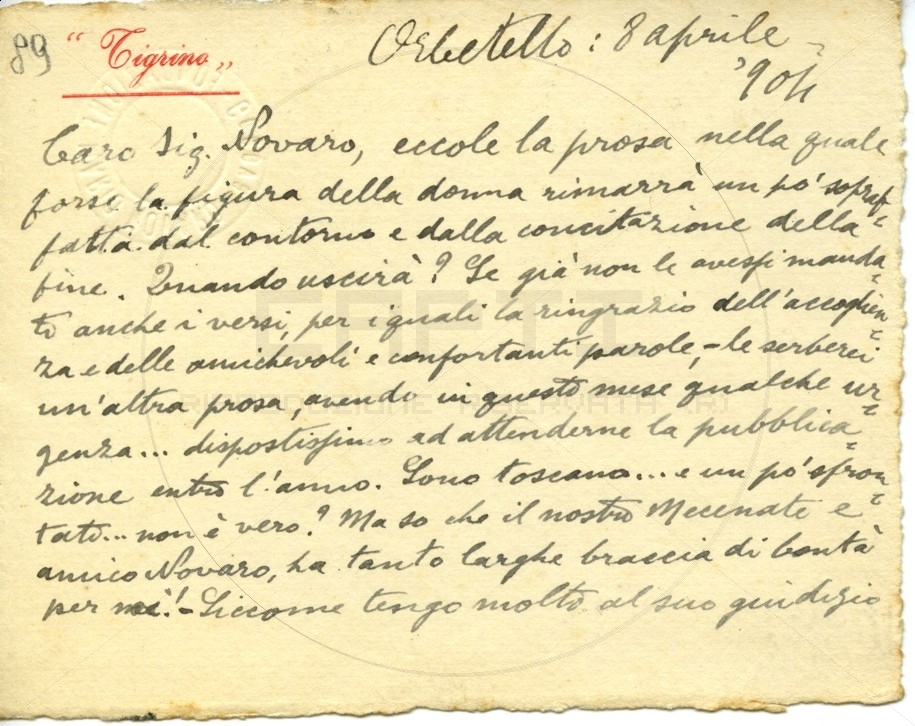 89
“Tigrino„
Orbetello: 8 aprile
'904
Caro Sig. Novaro, eccole la prosa nella quale
forse la figura della donna rimarrà un pò sopraf=
fatta dal contorno e dalla concitazione della
fine. Quando uscirà? Se già non le avessi manda=
to anche i versi, per i quali la ringrazio dell'accoglien=
za e delle amichevoli e confortanti parole, - le serberei
un'altra prosa, avendo in questo mese qualche ur=
genza... dispostissimo ad attenderne la pubblica=
zione entro l'anno. Sono toscano... e un pò sfron=
tato... non è vero? Ma so che il nostro Mecenate e
amico Novaro, ha tanto larghe braccia di bontà
per me! - Siccome tengo molto al suo giudizio
RIPRODUZIONE RISERVATA